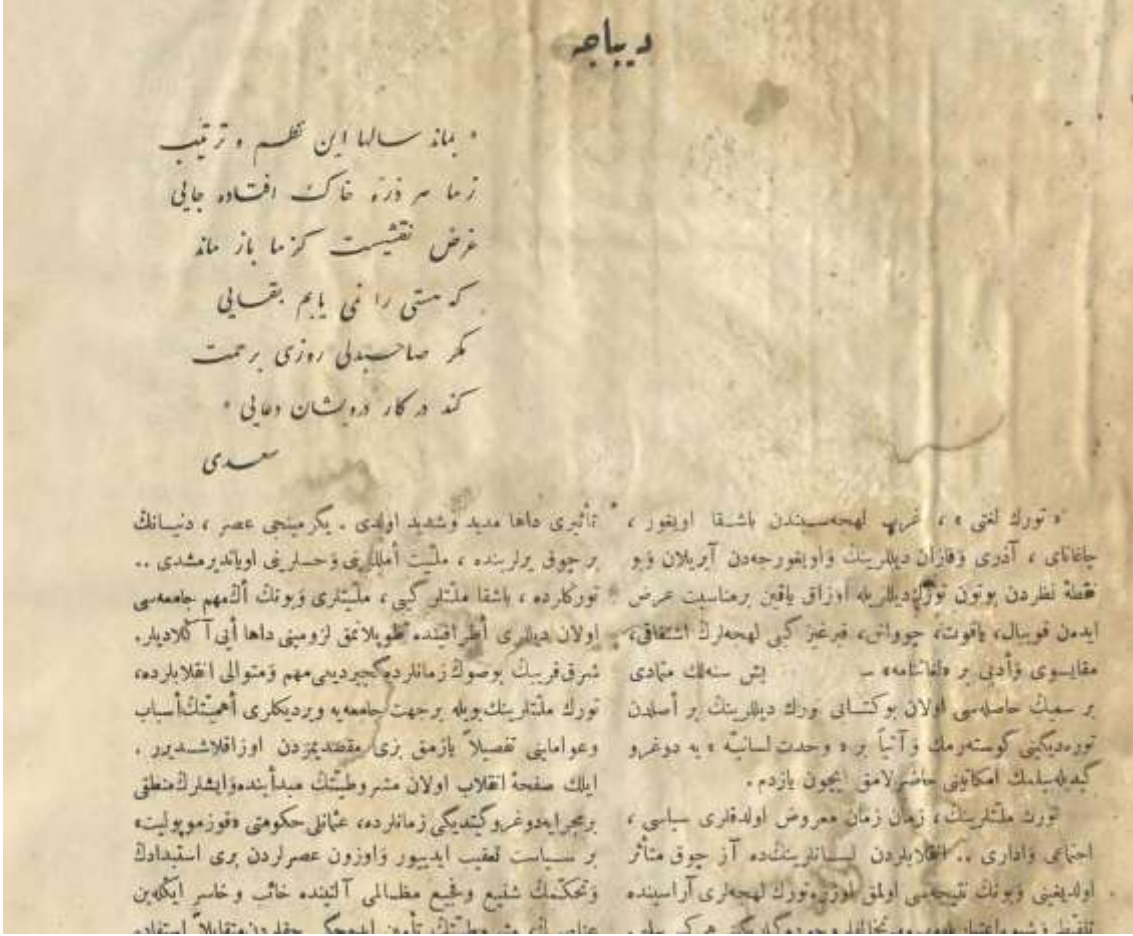 ديباجه
« بماند سالها اين نظم و ترتيب
زما هر ذرّه خاك افتاده جايى
غرض نقشيست كزما باز ماند
كه هستى را نمى يابم بقايى
مكر صاحبدلى روزى برحمت
كند در كار درويشان دعايى »
سعدى
« تورك لغتى » ، غرب لهجه‌سندن باشقا اويغور ،
چاغاتاى ، آذرى وَقازان ديللرينڭ وَاويغورجه‌دن آيريلان وَبو
نقطهٔ نظردن بوتون تورك ديللريله اوزاق ياقين برمناسبت عرض
ايده‌ن قويبال، ياقوت، چوواش، قيرغيز كبى لهجه‌لرڭ اشتقاق،
مقايسوى وَأدبى بر «لغاتنامه» ـ بش سنه‌لك متمادى
بر سعيڭ حاصله‌سى اولان بوكتابى تورك ديللرينڭ بر أصلدن
توره‌ديكينى كوسته‌رمك وَآتياً بر « وحدت لسانيّه » يه دوغرو
كيديله‌بيلمك امكانينى حاضرلامق ايچون يازدم .
تورك ملتلرينڭ، زمان زمان معروض اولدقلرى سياسى ،
اجتماعى وَادارى .. انقلابلردن لسانلرينڭ‌ده آز چوق متأثر
اولديغنى وَبونڭ نتيجه‌سى اولمق اوزره تورك لهجه‌لرى آراسينده
تأثيرى داها مديد وشديد اولدى . يكرمينجى عصر ، دنيانڭ
بر چوق يرلرينده ، ملّيت أمللرينى وَحسلرينى اوياندیرمشدى ..
توركلرده ، باشقا ملتلر كبى ، ملّيتلرى وَبونڭ أڭ مهم جامعه‌سى
اولان ديللرى أطرافينده طوپلانمق لزومينى داها أيى آڭلاديلر.
شرق قريبڭ بوصوڭ زمانلرده كچيرديى مهم وَمتوالى انقلابلرده،
تورك ملتلرينڭ بويله برجهت جامعه‌يه ويرديكلرى أهميتڭ أسباب
وعواملينى تفصيلاً يازمق بزى مقصديمزدن اوزاقلاشديرر .
ايلك صفحهٔ انقلاب اولان مشروطيتڭ مبدأينده وَايشلرڭ منطقى
برمجرايه دوغرو كيتديكى زمانلرده، عثمانلى حكومتى «قوزموپوليت»
بر سياست تعقيب ايدييور وَاوزون عصرلردن برى استبدادڭ
وَتحكمڭ شنيع وفجيع مظالمى آلتينده خائب وخاسر ايكله‌ين